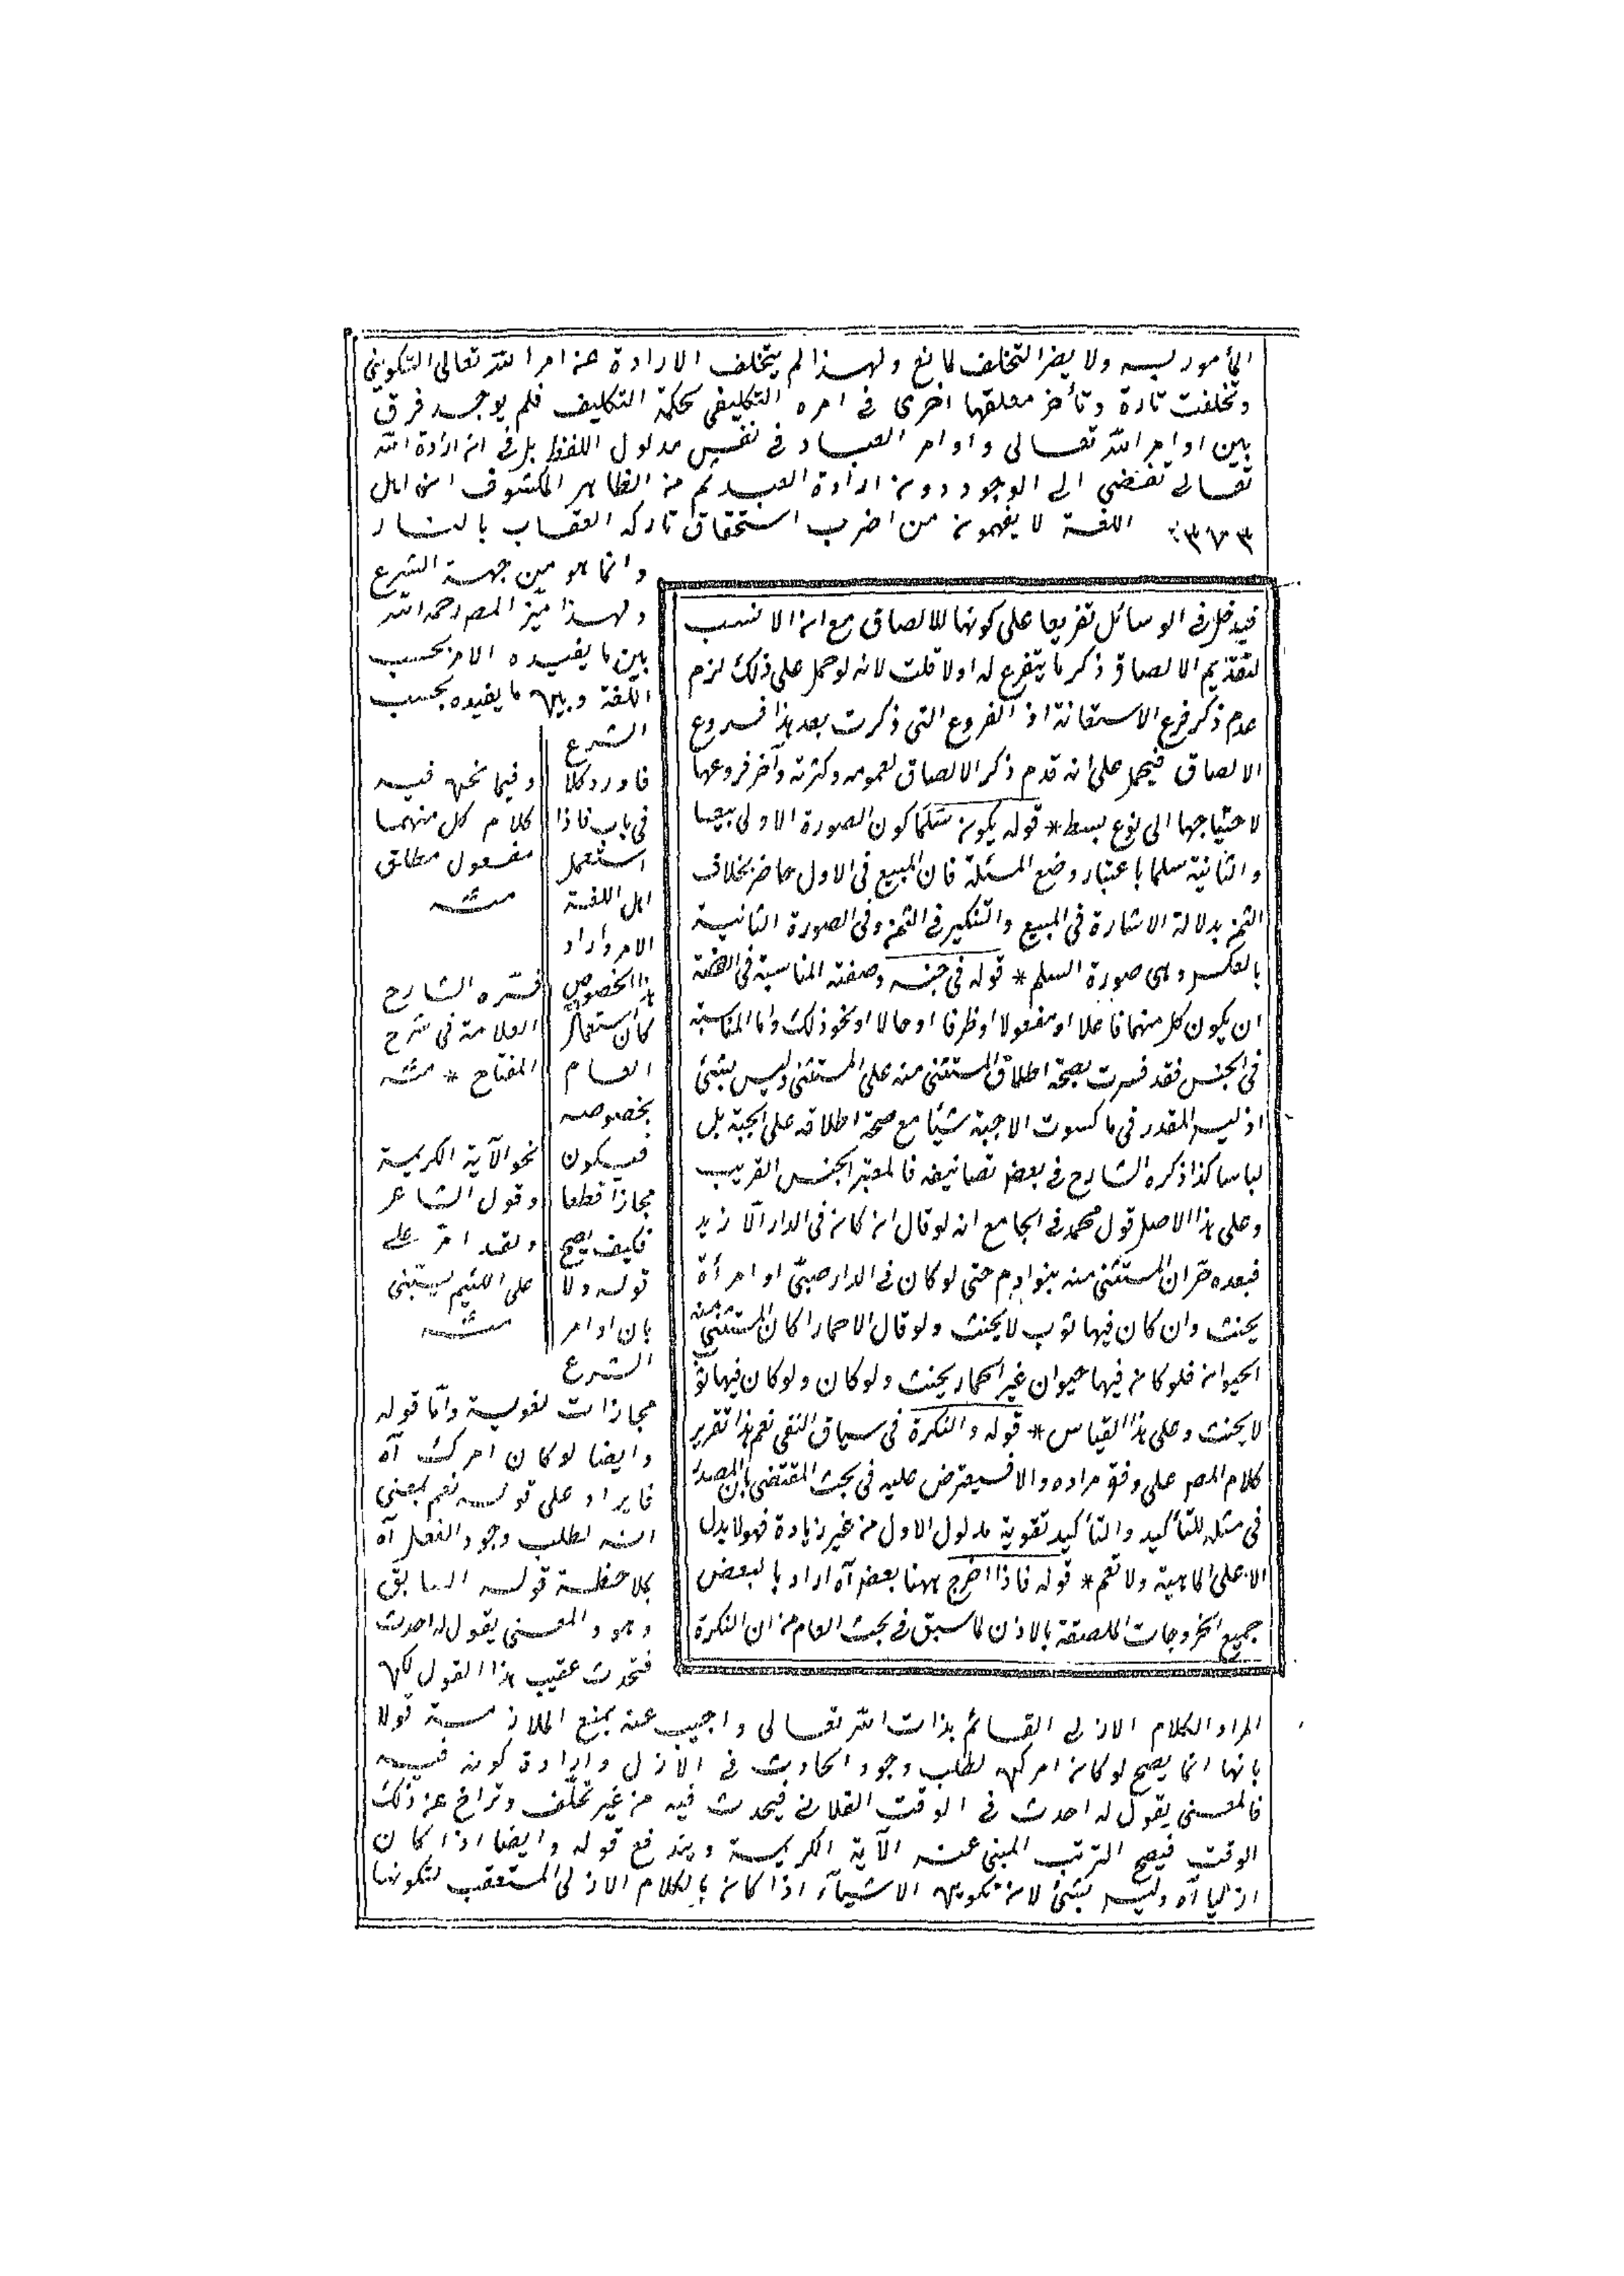 المأمور به ولا يضر التخلف لمانع ولهذا لم يتخلف الارادة عن امر الله تعالى التكويني
وتخلفت تارة وتأخر معلقها اخرى في امره التكليفي لحكمة التكليف فلم يوجد فرق
بين اوامر الله تعالى واوامر العباد في نفس مدلول اللفظ بل في ان ارادة الله
تعالى تفضي الى الوجود دون ارادة العبد ثم من الظاهر المكشوف ان اهل
اللغة لا يفهمون من اضرب استحقاق تاركه العقاب بالنار
٣٧٣
وانما هو من جهة الشرع
ولهذا ميّز المص رحمه الله
بين ما يفيده الامر بحسب
اللغة وبين ما يفيده بحسب
الشرع
فاورد كلا
في باب فاذا
استعمل
اهل اللغة
الامر وأراد
هذا الخصوص
كان استعمال
العام
بخصوصه
فيكون
مجازا قطعا
فكيف يصح
قوله ولا
بان اوامر
الشرع
مجازات لغوية وأمّا قوله
وايضا لو كان امرك آه
فايراد على قوله نعم بمعنى
انه لطلب وجود الفعل آه
بملاحظة قوله السابق
وهو والمعنى يقول له احدث
فتحدث عقيب هذا القول لكن
المراد الكلام الازلي القائم بذات الله تعالى واجيب عنه بمنع الملازمة قولا
بانها انما يصح لو كان امر كن لطلب وجود الحادث في الأزل وارادة كونه فيه
فالمعنى يقول له احدث في الوقت الفلاني فيحدث فيه من غير تخلّف وتراخ عن ذلك
الوقت فيصح الترتب المبني عنه الآية الكريمة ويندفع قوله وايضا اذا كان
ازليا آه وليس بشئ لان تكوين الاشياء اذا كان بالكلام الازلي المستعقب لتكونها
وفيما نحن فيه
كلام كل منهما
مفعول مطلق
منه
فسّره الشارح
العلامة في شرح
المفتاح * منه
نحو الآية الكريمة
وقول الشاعر
ولقد امرّ على
على اللئيم يسبّني
منه
فيدخل في الوسائل تفريعا على كونها للالصاق مع ان الانسب
لتقديم الالصاق ذكر ما يتفرع له اولا قلت لانه لو حمل على ذلك لزم
عدم ذكر فرع الاستعانة اذ الفروع التي ذكرت بعد هذا فروع
الالصاق فيحمل على انه قدم ذكر الالصاق لعمومه وكثرته وآخر فروعها
لاحتياجها الى نوع بسط * قوله يكون سلما كون الصورة الاولى بيعا
والثانية سلما باعتبار وضع المسئلة فان المبيع في الاول حاضر بخلاف
الثمن بدلالة الاشارة في المبيع والتنكير في الثمن وفي الصورة الثانية
بالعكس وهي صورة السلم * قوله في جنسه وصفته المناسبة في الصفة
ان يكون كل منهما فاعلا او مفعولا او ظرفا او حالا او نحو ذلك واما المناسبة
في الجنس فقد فسرت بصحة اطلاق المستثنى منه على المستثنى وليس بشئ
اذ ليس المقدر في ما كسوت الا جبة شيئا مع صحة اطلاقه على الجبة بل
لباسا كذا ذكره الشارح في بعض تصانيفه فالمعتبر الجنس القريب
وعلى هذا الاصل قول محمد في الجامع انه لو قال ان كان في الدار الّا زيد
فعبده حر ان المستثنى منه بنو ادم حتى لو كان في الدار صبيّ او امرأة
يحنث وان كان فيها ثوب لا يحنث ولو قال الا حمارا كان المستثنى منه
الحيوان فلو كان فيها حيوان غير الحمار يحنث ولو كان ولو كان فيها ثوب
لا يحنث وعلى هذا القياس * قوله والنكرة في سياق النفي نعم هذا تقرير
كلام المص على وفق مراده والا فسيعترض عليه في بحث المقتضى بان المصدر
في مثله للتأكيد والتأكيد تقوية مدلول الاول من غير زيادة فهو لا يدل
الا على الماهية ولا تعم * قوله فاذا اخرج ههنا بعض آه اراد بالبعض
جميع الخروجات الملصقة بالاذن لما سبق في بحث العام من ان النكرة